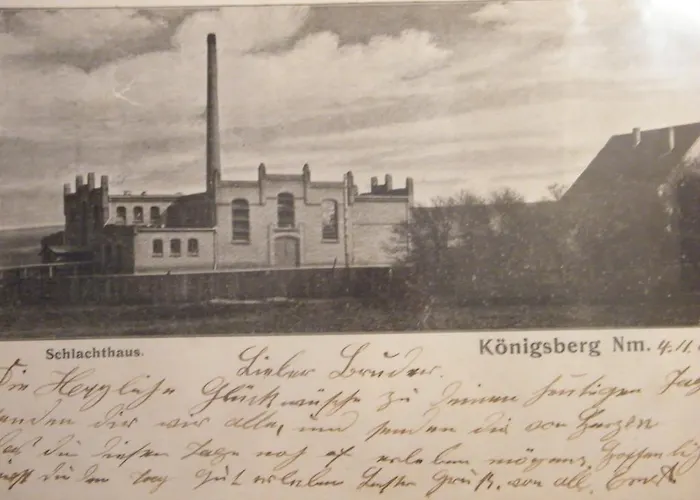 Schlachthaus.
Königsberg Nm. 4.11.
Lieber Bruder.
Die Herzliche Glückwünsche zu Deinen heutigen Tag
senden dir wir alle, und senden die von Herzen
das du diesen Tage noch oft erleben mögest, hoffentlich
du den Tag gut erleben. Beste Grüße von alle, Ernst